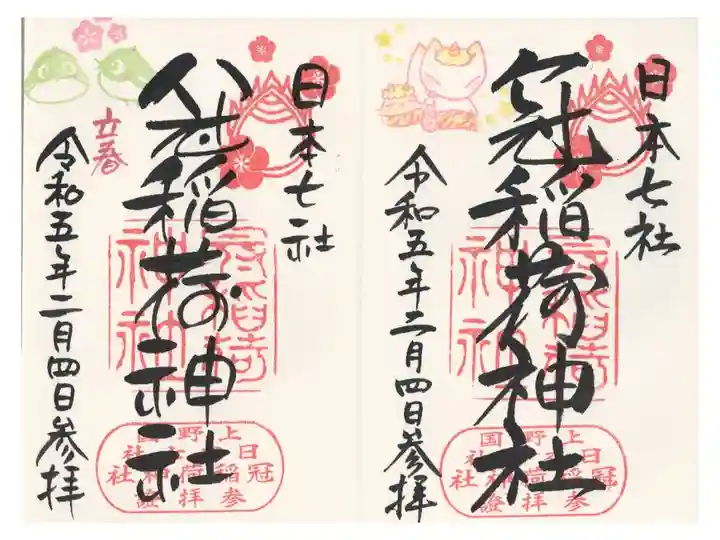 日本七社
冠稲荷神社
立春
令和五年二月四日參拝
上野国
冠稲荷神社
参拝證
日本七社
冠稲荷神社
令和五年二月四日參拝
上野国
冠稲荷神社
参拝證